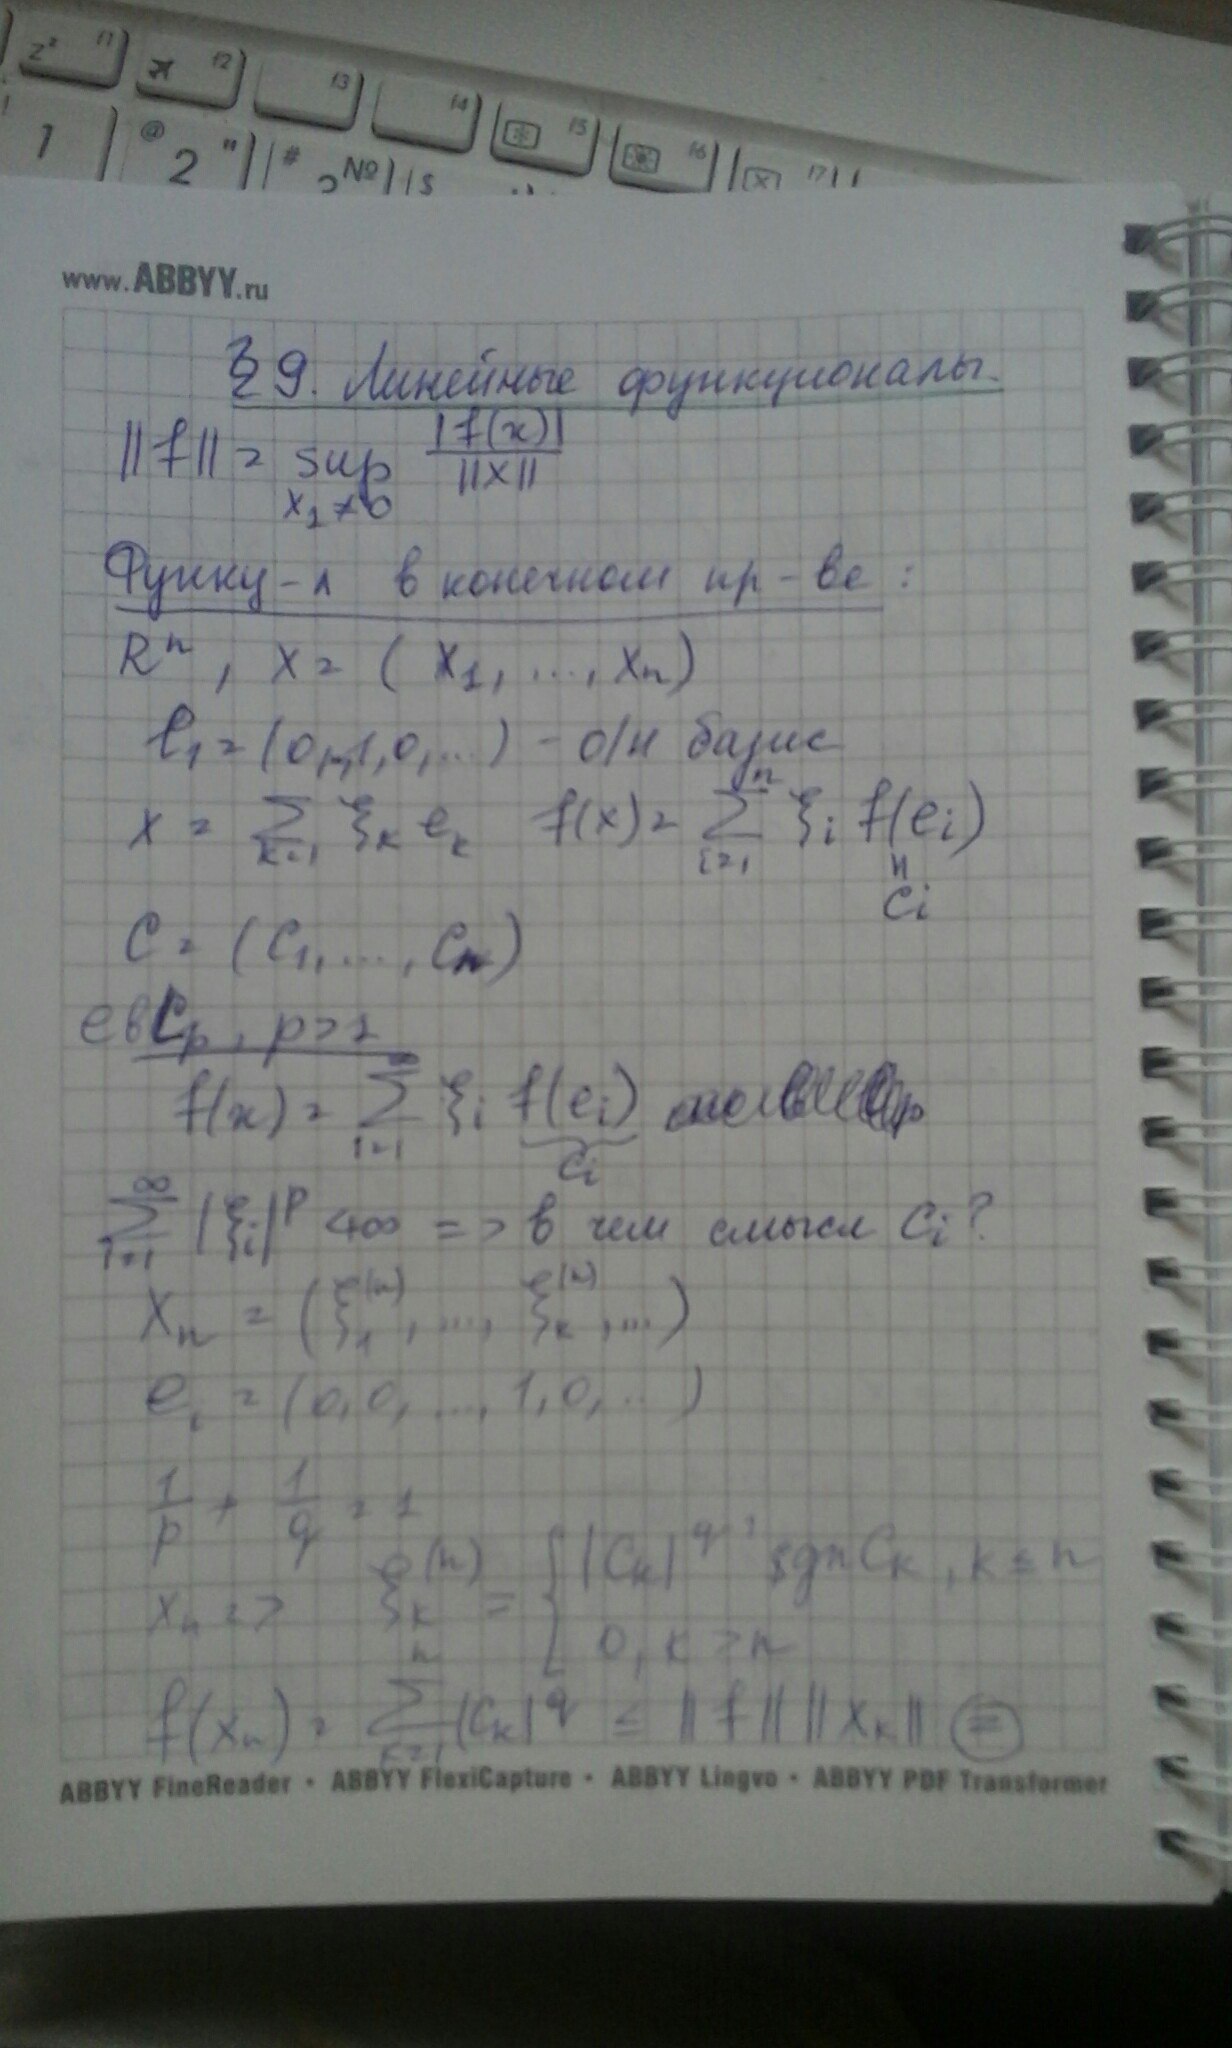 z² f1 я f2 f3 f4 f5 f6 f7
1 @ 2 " # 3 № \ $
www.ABBYY.ru
§ 9. Линейные функционалы.
||f|| = sup |f(x)| / ||x||
x₁ ≠ 0
Функц-л в конечном пр-ве :
Rⁿ, x = (x₁, ..., xₙ)
e₁ = (0,..,1,0,...) - о/н базис
x = Σ_{k=1} ξₖ eₖ f(x) = Σ_{i=1}^{n} ξᵢ f(eᵢ)
"
cᵢ
C = (c₁, ..., cₙ)
ев Lp, p > 1
f(x) = Σ_{i=1}^{∞} ξᵢ f(eᵢ)
cᵢ
Σ_{i=1}^{∞} |ξᵢ|^p < +∞ => в чем смысл Cᵢ?
Xₙ = (ξ₁^{(n)}, ..., ξₖ^{(n)}, ...)
eᵢ = (0,0, ..., 1,0, ...)
1/p + 1/q = 1
xₙ => ξₖ^{(n)} = { |Cₖ|^{q-1} sgn Cₖ, k ≤ n
0, k > n
f(xₙ) = Σ_{k=1}^{n} |Cₖ|^q ≤ ||f|| ||xₖ|| =
ABBYY FineReader • ABBYY FlexiCapture • ABBYY Lingvo • ABBYY PDF Transformer